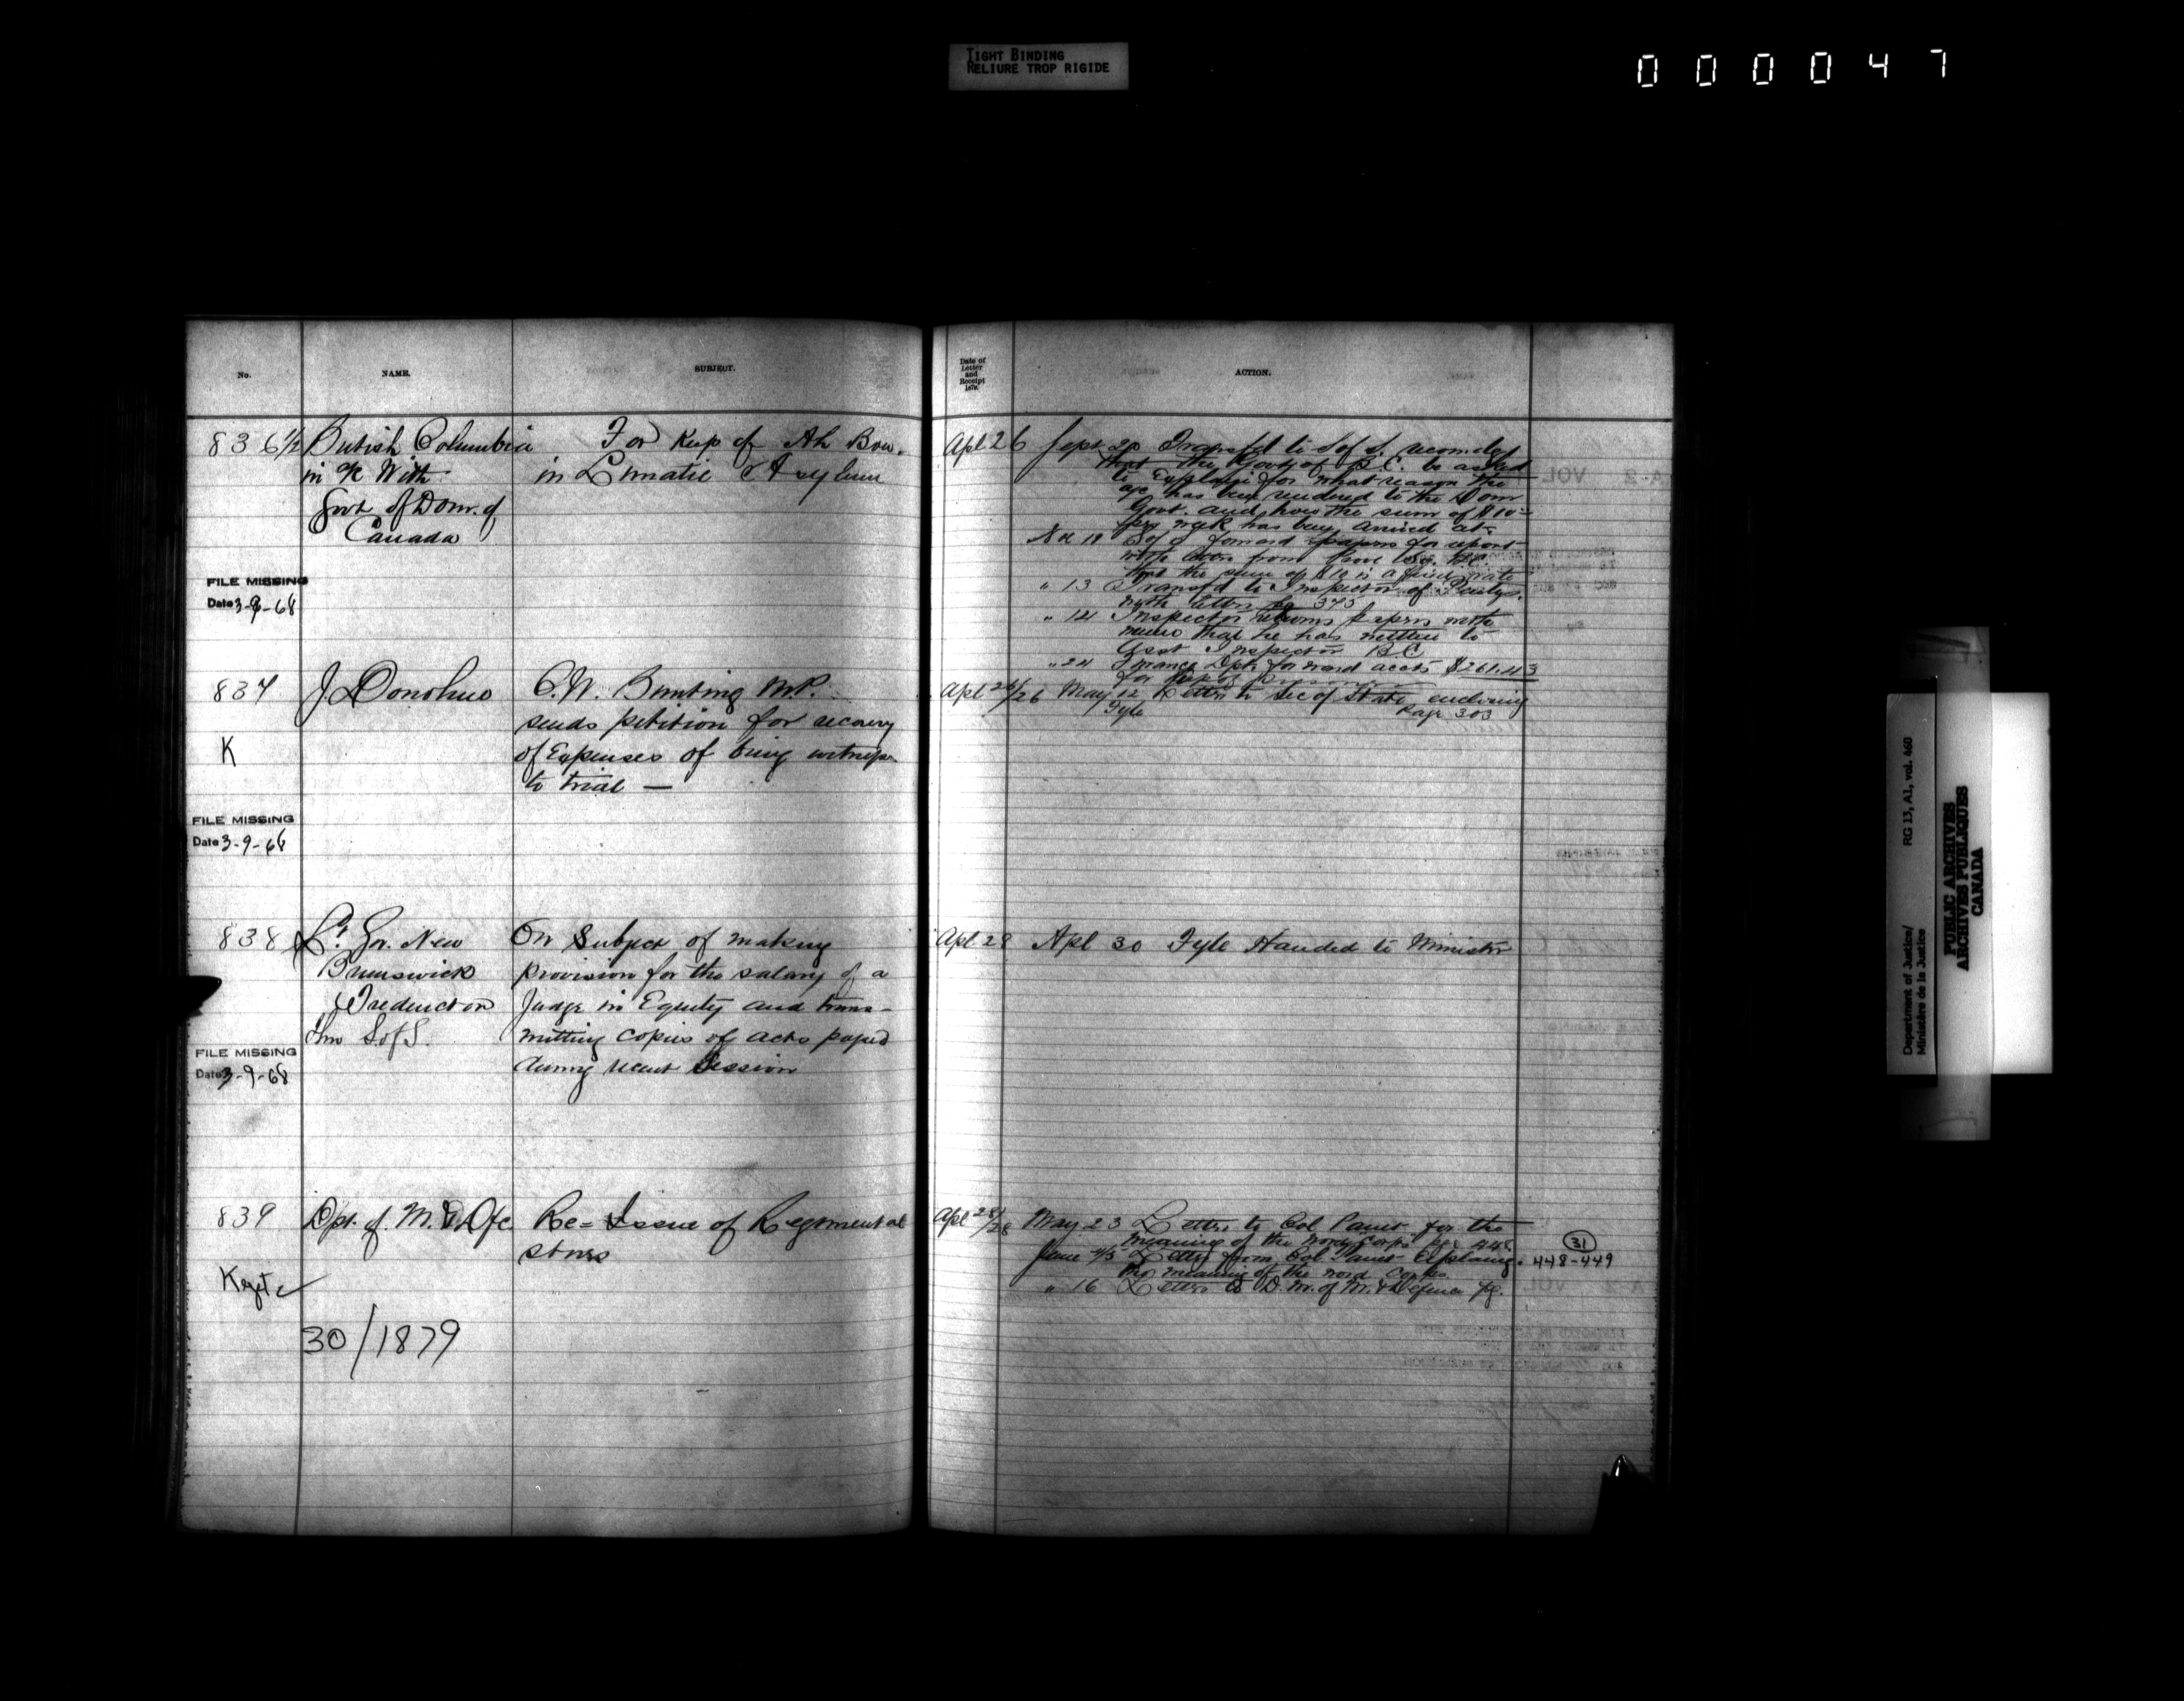 TIGHT BINDING
RELIURE TROP RIGIDE
000047
No.
NAME.
SUBJECT.
836 1/2
British Columbia
in % With
Govt of Dom. of
Canada
For Keep of Ah Bow.
in Lunatic Asylum
FILE MISSING
Date 3-9-68
837
J. Donohue
C. W. Bunting M.P.
sends petition for recovery
of Expenses of being witness
to trial —
K
FILE MISSING
Date 3-9-68
838
Lt. Gov. New
Brunswick
Fredericton
thro S. of S.
On Subject of making
provision for the salary of a
Judge in Equity and trans-
mitting copies of acts passed
during recent Session
FILE MISSING
Date 3-9-68
839
Dpt. of M. & Dfc
Re= Issue of Regimental
stores
30/1879
Date of
Letter
and
Receipt
187
ACTION.
Apl 26
Sept 20 Transfd to S of S. recomded
that the Govt of B.C. be asked
to Explain for what reason the
a/c has been rendered to the Dom
Govt. and how the sum of $10
per week has been arrived at
18 S of S forward papers for report
with from Prov Sec. B.C.
that the sum of $10 is a rate
" 13 Transfd to Inspector of Penty.
with letter pg 375
" 14 Inspector returns papers with
memo that he has written to
Asst Inspector B.C
" 24 Finance Dpt. forward accts $261.43
for keep of prisoner
Apl 26/26
May 12 Letter to Sec of State enclosing
Fyle Page 303
Apl 28
Apl 30 Fyle Handed to Minister
Apl 28/28
May 23 Letter to Col Panet for the
meaning of the word Corps pge 448.
June 4/5 Letter from Col Panet Explaing.
the meaning of the word Corps
" 16 Letter to D. M. of M. & Defence pg.
31
448-449
Department of Justice/
Ministère de la Justice
RG 13, A1, vol. 460
PUBLIC ARCHIVES
ARCHIVES PUBLIQUES
CANADA